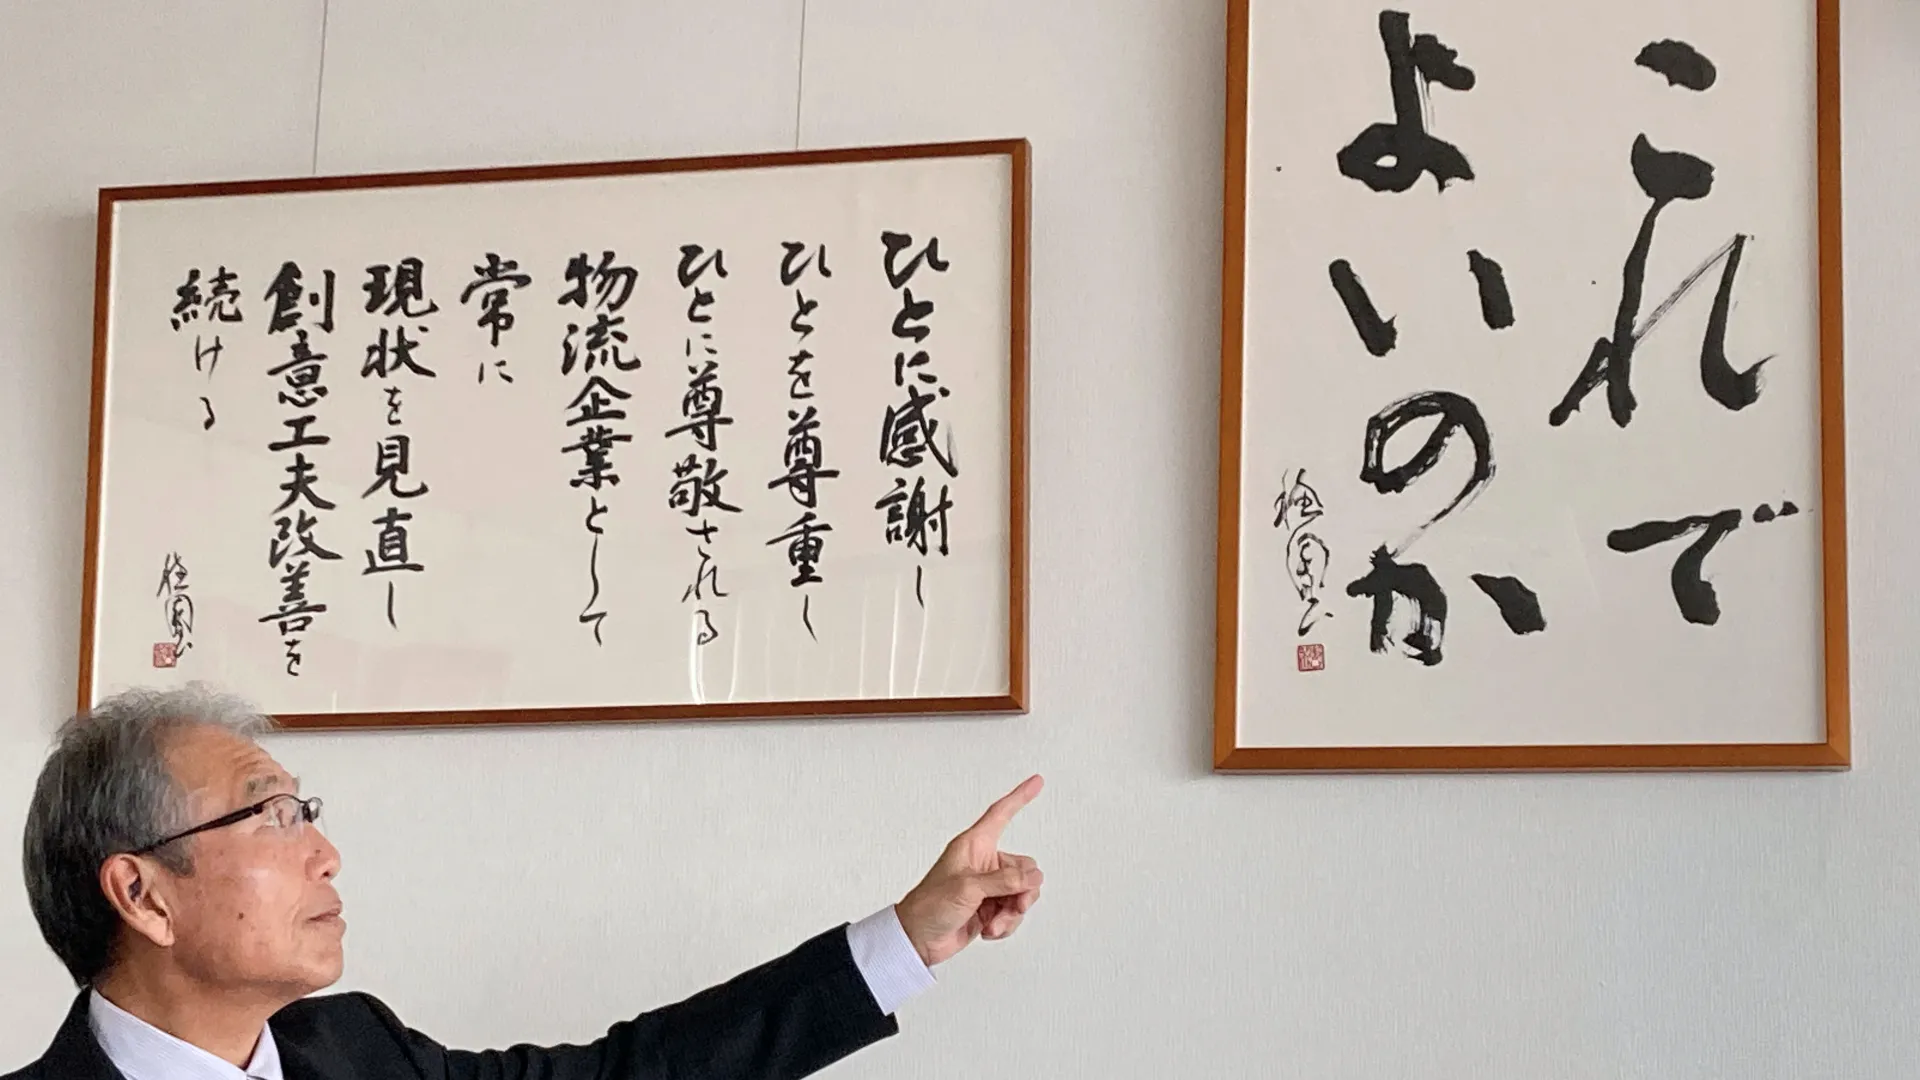 これで
よいのか
ひとに感謝し
ひとを尊重し
ひとに尊敬される
物流企業として
常に
現状を見直し
創意工夫改善を
続ける